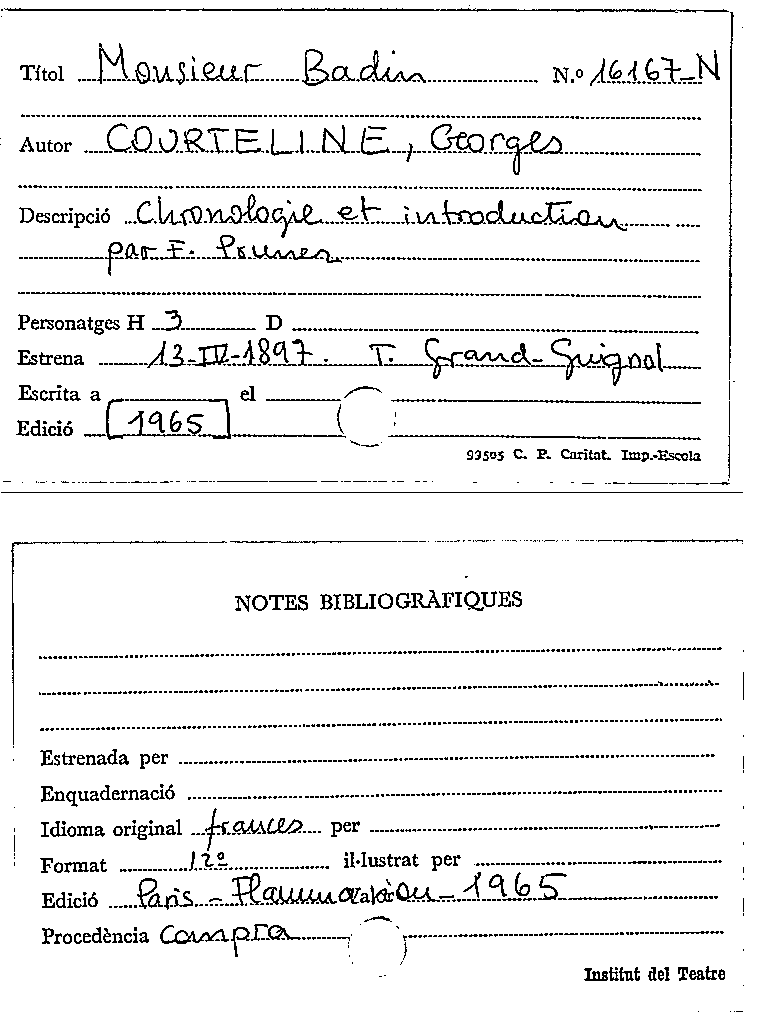 Títol Monsieur Badin N.º 16167-N
Autor COURTELINE, Georges
Descripció Chronologie et introduction
par F. Pruner
Personatges H 3 D
Estrena 13-IV-1897. T. Grand-Guignol
Escrita a el
Edició 1965
93505 C. P. Caritat. Imp.-Escola
NOTES BIBLIOGRÀFIQUES
Estrenada per
Enquadernació
Idioma original frances per
Format 12º il·lustrat per
Edició Paris - Flammarion - 1965
Procedència Compra
Institut del Teatre